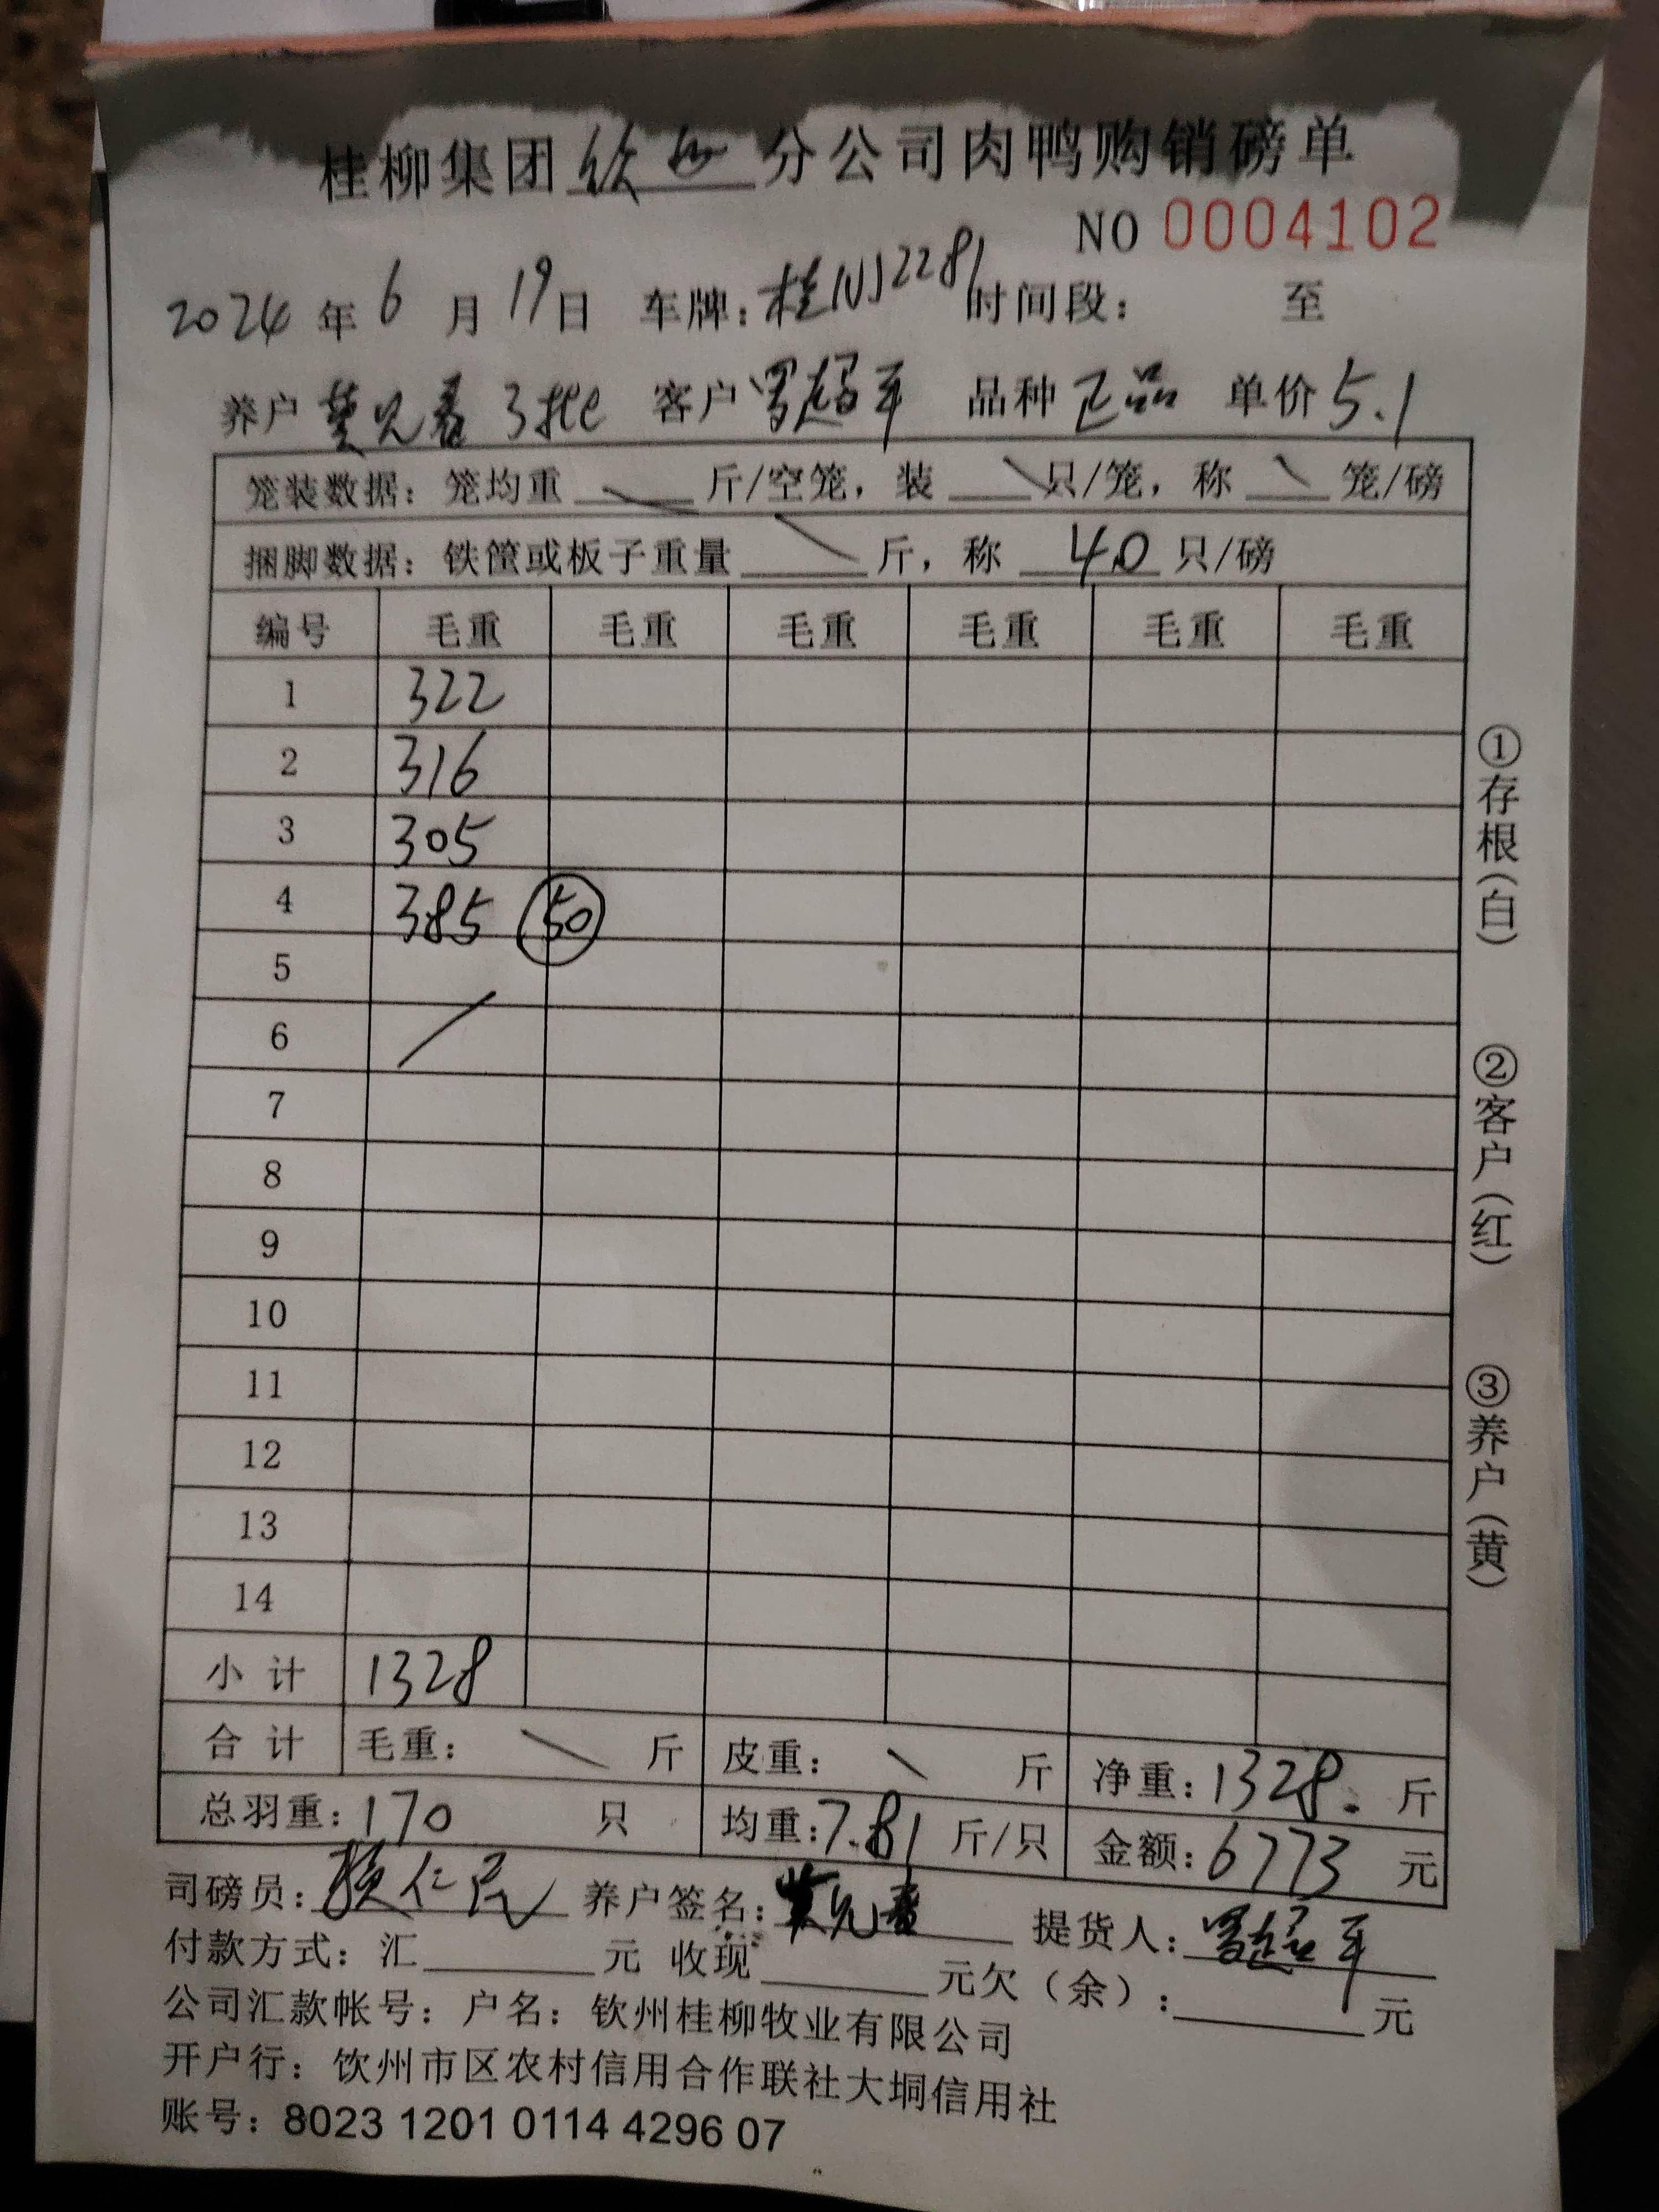 桂柳集团钦州分公司肉鸭购销磅单
NO 0004102
2024年6月19日 车牌:桂NJ2281 时间段: 至
养户 3批 客户罗超平 品种正品 单价5.1
笼装数据:笼均重 斤/空笼,装 只/笼,称 笼/磅
捆脚数据:铁筐或板子重量 斤,称 40 只/磅
编号 毛重 毛重 毛重 毛重 毛重 毛重
1 322
2 316
3 305
4 385 50
5
6
7
8
9
10
11
12
13
14
小计 1328
合计 毛重: 斤 皮重: 斤 净重:1328. 斤
总羽重:170 只 均重:7.81 斤/只 金额:6773 元
司磅员: 仁民 养户签名: 提货人:罗超平
付款方式:汇 元 收现 元欠(余): 元
公司汇款帐号:户名:钦州桂柳牧业有限公司
开户行:钦州市区农村信用合作联社大垌信用社
账号:8023 1201 0114 4296 07
①存根(白)
②客户(红)
③养户(黄)